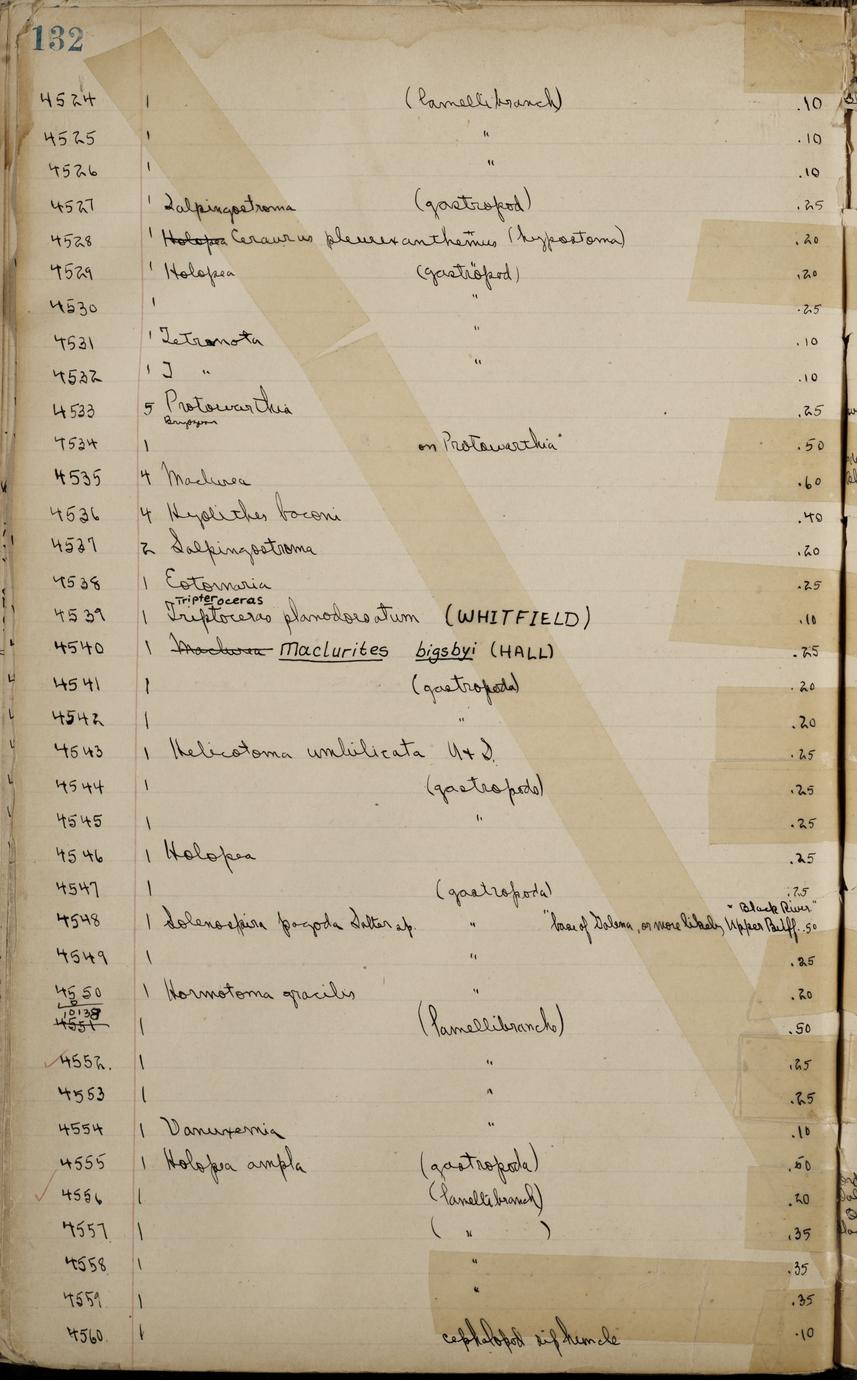 132
4524 1 (lamellibranch) .10
4525 1 " .10
4526 1 " .10
4527 1 Salpingostroma (gastropod) .25
4528 1 Holopea Ceraurus pleurexanthemus (hypostoma) .20
4529 1 Holopea (gastropod) .20
4530 1 " .25
4531 1 Tetranota " .10
4532 1 J " " .10
4533 5 Protowarthia .25
Bryozoan
4534 1 on Protowarthia" .50
4535 4 Maclurea .60
4536 4 Hyolithes baconi .40
4537 2 Salpingostroma .20
4538 1 Eotomaria .25
Tripteroceras
4539 1 Triptoceras planodorsatum (WHITFIELD) .10
4540 1 Maclurea Maclurites bigsbyi (HALL) .25
4541 1 (gastropoda) .20
4542 1 " .20
4543 1 Helicotoma umbilicata U+S. .25
4544 1 (gastropods) .25
4545 1 " .25
4546 1 Holopea .25
4547 1 (gastropoda) .25
"Black River"
4548 1 Solenospira pagoda Salter sp. " "base of Galena, or more likely Upper Buff. .50
4549 1 " .25
4550 1 Hormotoma gracilis " .20
10138
4551 1 (lamellibranchs) .50
4552. 1 " .25
4553 1 " .25
4554 1 Vanuxemia " .10
4555 1 Holopea ampla (gastropoda) .50
4556 1 (lamellibranch) .20
4557 1 ( " ) .35
4558 1 " .35
4559 1 " .35
4560 1 cephalopod siphuncle .10